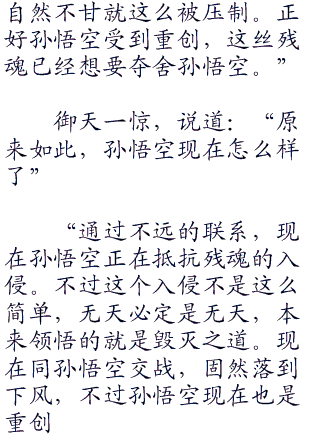 自然不甘就这么被压制。正
好孙悟空受到重创，这丝残
魂已经想要夺舍孙悟空。”
御天一惊，说道：“原
来如此，孙悟空现在怎么样
了”
“通过不远的联系，现
在孙悟空正在抵抗残魂的入
侵。不过这个入侵不是这么
简单，无天必定是无天，本
来领悟的就是毁灭之道。现
在同孙悟空交战，固然落到
下风，不过孙悟空现在也是
重创